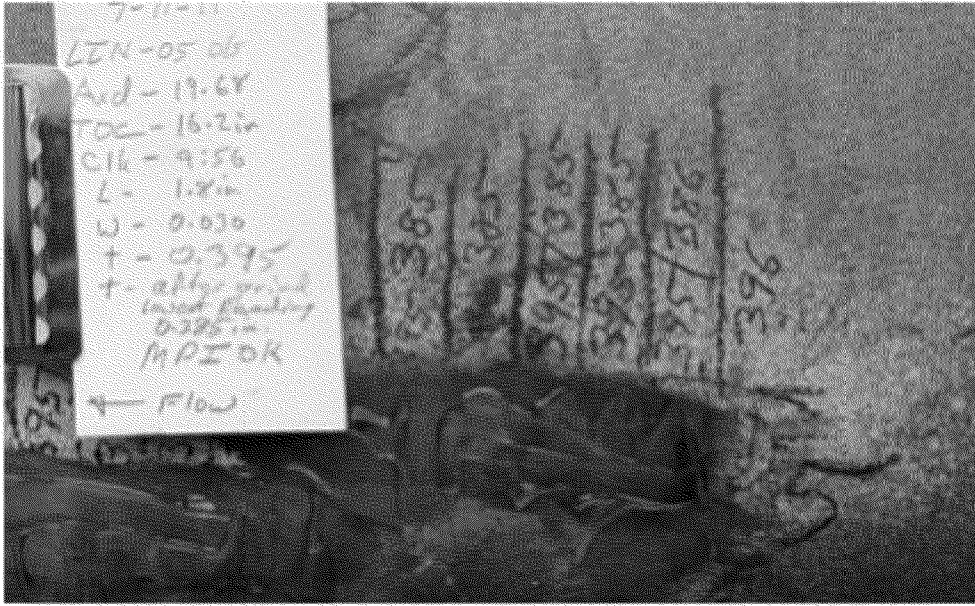 7-11-11
LIN-05 06
Axd - 19.68
TOC - 16.2in
Clk - 9:56
L - 1.8in
W - 0.030
t - 0.395
t - after grind
lowest Reading
0.385in
MPI OK
← Flow
395
385
385
395/385
395/385
395/386
396